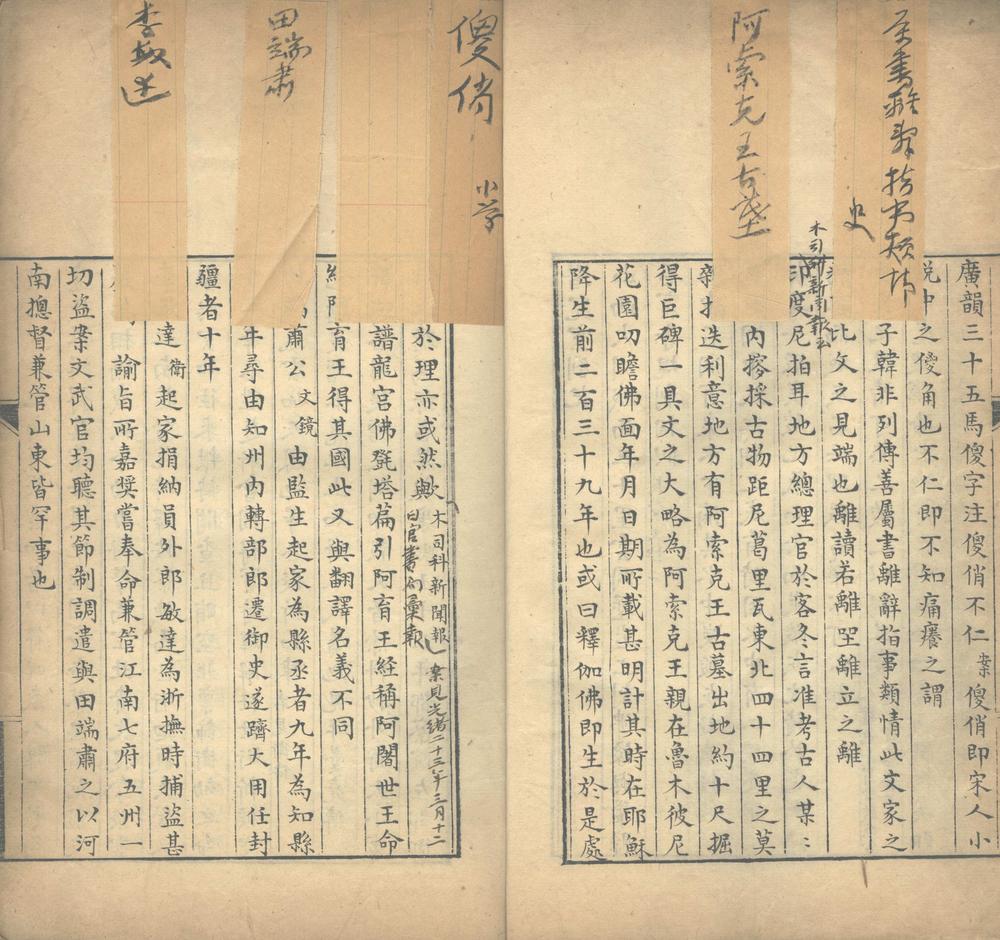 屬書離辭指事類情
史
阿索克王古墓
傻俏
小学
田端肅
李敏达
廣韻三十五馬傻字注傻俏不仁案傻俏即宋人小
說中之傻角也不仁即不知痛癢之謂
子韓非列傳善屬書離辭指事類情此文家之
比文之見端也離讀若離坐離立之離
木司科新聞報云
印度尼拍耳地方總理官於客冬言准考古人某某
內搜採古物距尼葛里瓦東北四十四里之莫
迭利意地方有阿索克王古墓出地約十尺掘
得巨碑一具文之大略為阿索克王親在魯木彼尼
花園叨瞻佛面年月日期所載甚明計其時在耶穌
降生前二百三十九年也或曰釋伽佛即生於是處
於理亦或然歟木司科新聞報
曰官書局彙報
案見光緒二十三年三月十二
譜龍宮佛甃塔篇引阿育王經稱阿闍世王命
育王得其國此又與翻譯名義不同
肅公文鏡由監生起家為縣丞者九年為知縣
年尋由知州內轉部郎遷御史遂躋大用任封
疆者十年
達衛起家捐納員外郎敏達為浙撫時捕盜甚
諭旨所嘉獎嘗奉命兼管江南七府五州一
切盜案文武官均聽其節制調遣與田端肅之以河
南摠督兼管山東皆罕事也